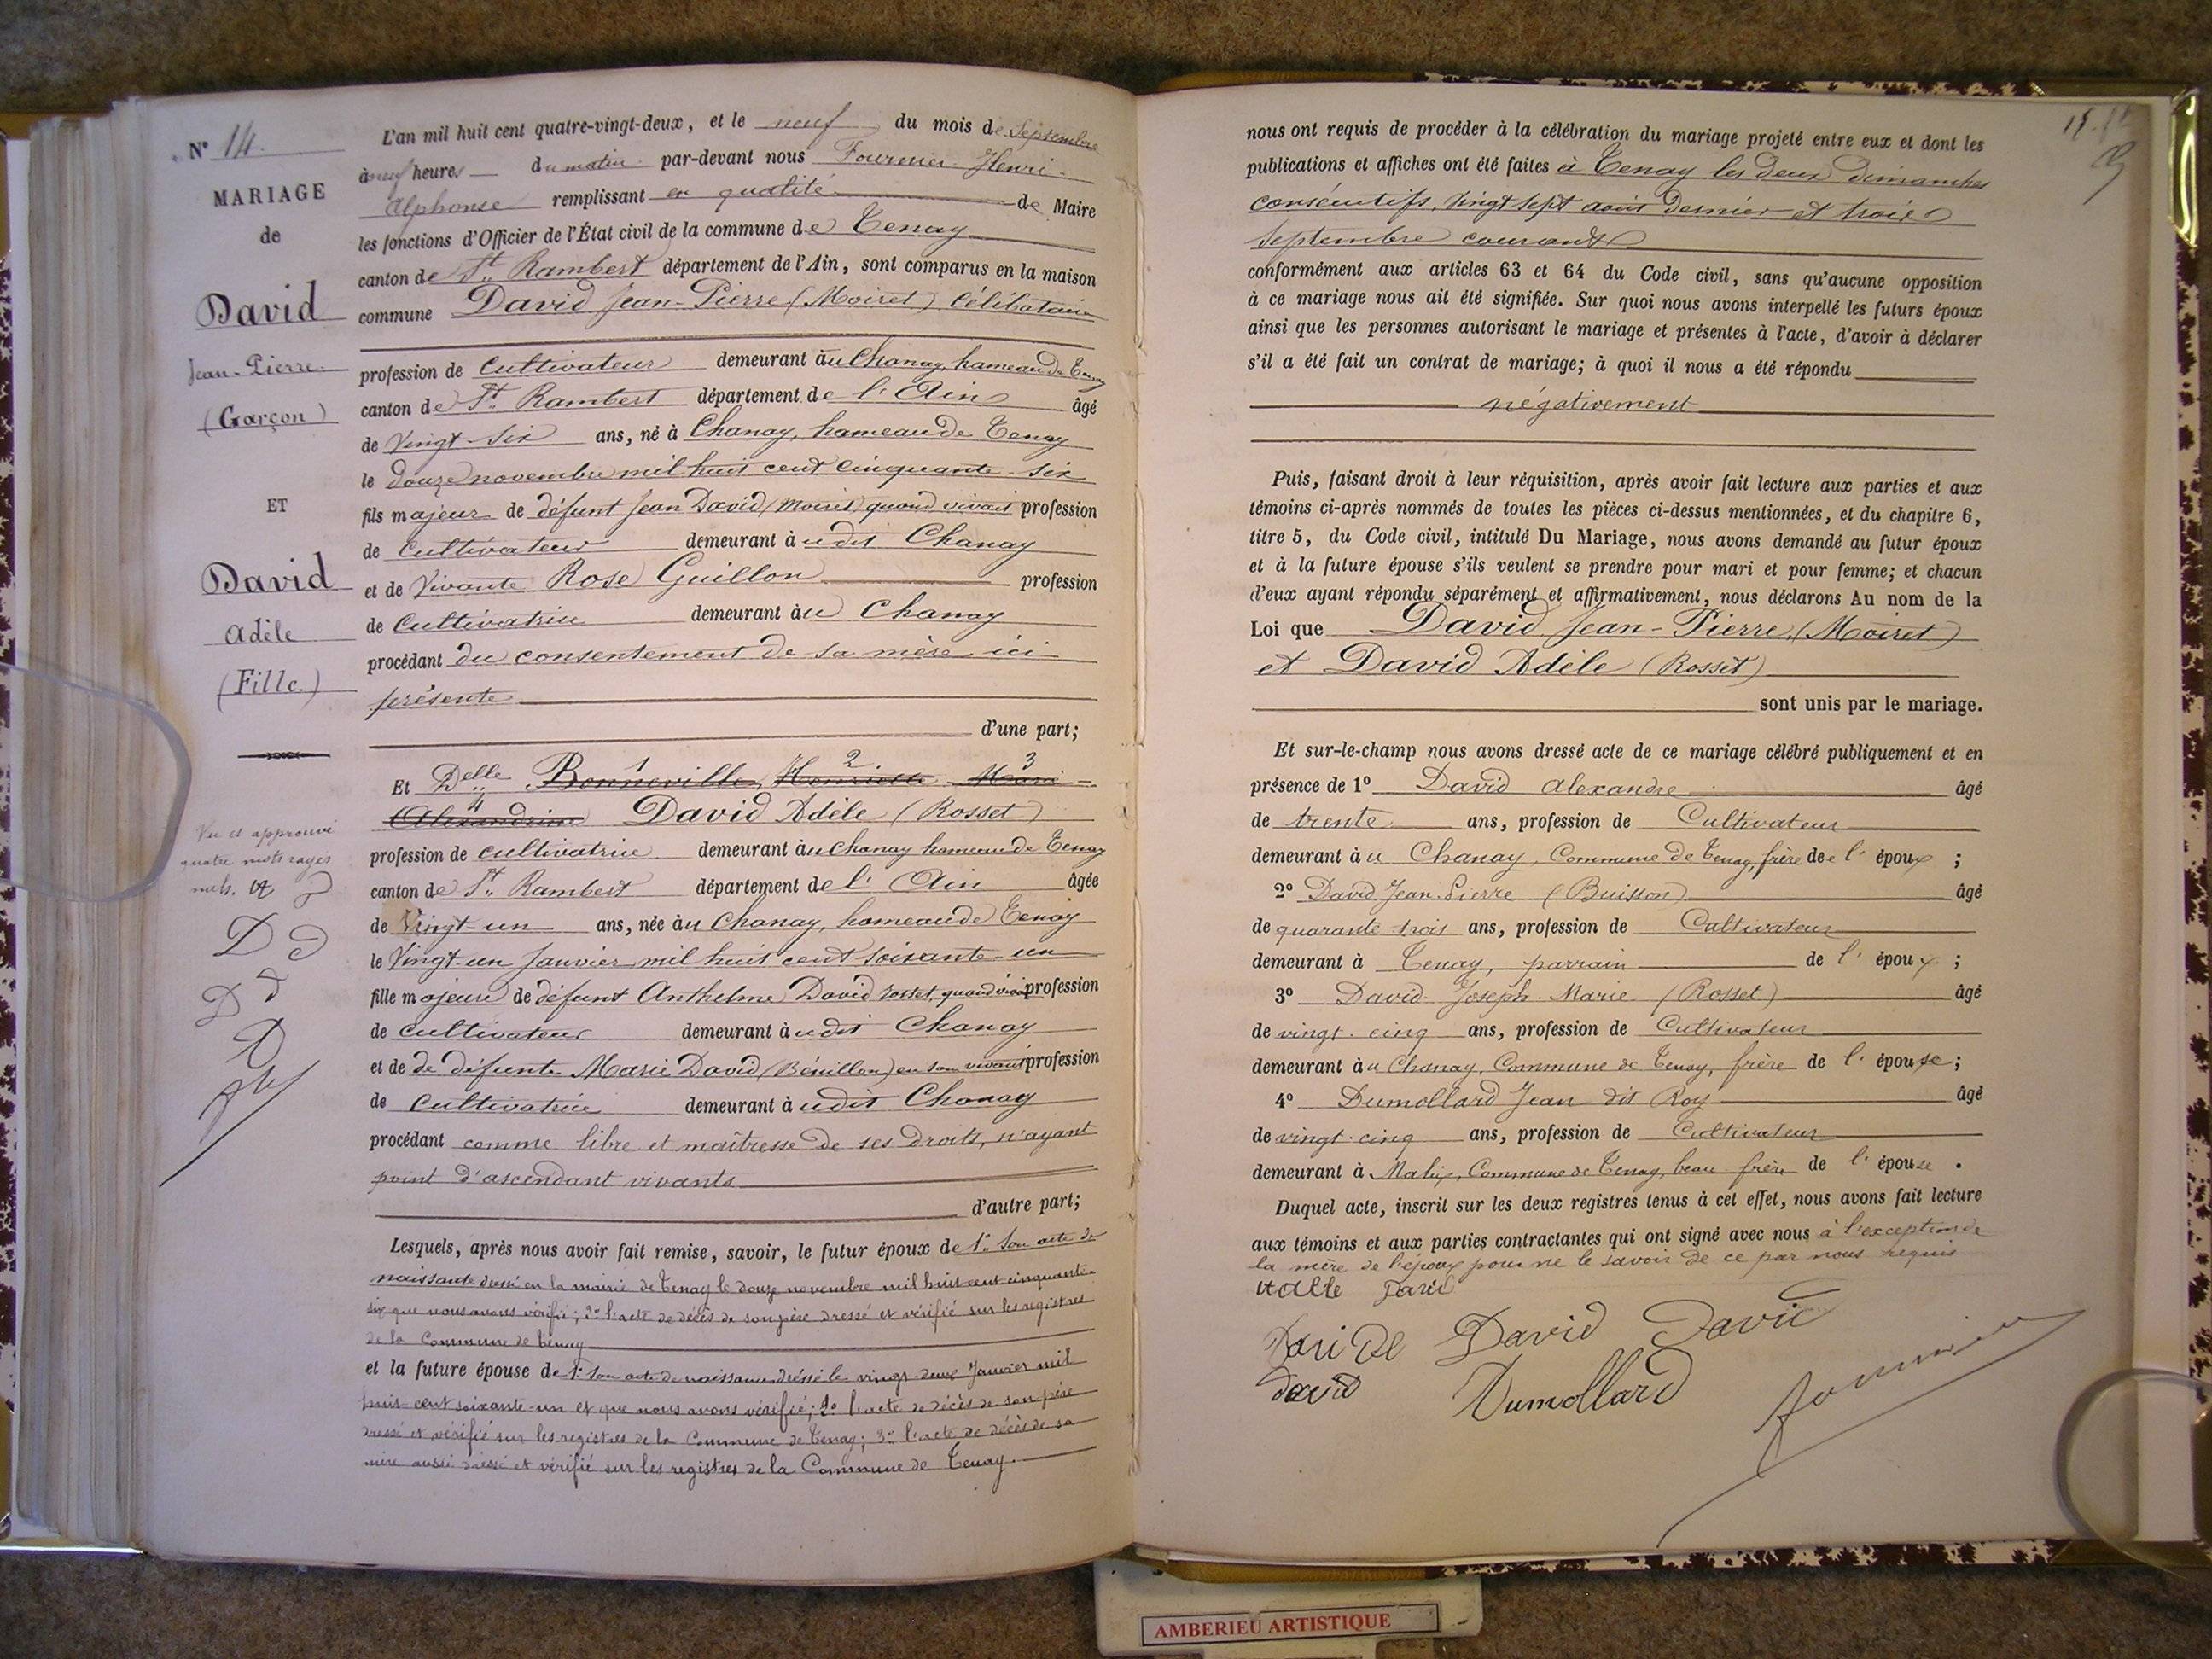 N° 14.
MARIAGE
de
David
Jean-Pierre
(Garçon)
ET
David
Adèle
(Fille)
Vu et approuvé
quatre mots rayés
nuls.
L'an mil huit cent quatre-vingt-deux, et le neuf du mois de Septembre
à neuf heures du matin par-devant nous Fournier Henri
Alphonse remplissant en qualité de Maire
les fonctions d'Officier de l'État civil de la commune de Tenay
canton de St. Rambert département de l'Ain, sont comparus en la maison
commune David Jean-Pierre (Moiret) Célibataire
profession de Cultivateur demeurant au Chanay, hameau de Tenay
canton de St. Rambert département de l'Ain âgé
de Vingt-Six ans, né à Chanay, hameau de Tenay
le douze novembre mil huit cent cinquante-six
fils majeur de défunt Jean David (Moiret) quand vivait profession
de Cultivateur demeurant audit Chanay
et de Vivante Rose Guillon profession
de Cultivatrice demeurant au Chanay
procédant du consentement de sa mère ici
présente
d'une part;
Et Delle Bonneville, 1 Henriette 2 Marie 3
Alexandrine 4 David Adèle (Rosset)
profession de cultivatrice demeurant au Chanay hameau de Tenay
canton de St. Rambert département de l'Ain âgée
de Vingt-un ans, née au Chanay, hameau de Tenay
le Vingt-un Janvier mil huit cent soixante-un
fille majeure de défunt Anthelme David rosset, quand vivait profession
de cultivateur demeurant audit Chanay
et de de défunte Marie David (Bénillon) en son vivant profession
de Cultivatrice demeurant audit Chanay
procédant comme libre et maîtresse de ses droits, n'ayant
point d'ascendant vivants
d'autre part;
Lesquels, après nous avoir fait remise, savoir, le futur époux de 1° Son acte de
naissance dressé en la mairie de Tenay le douze novembre mil huit cent cinquante-
six que nous avons vérifié; 2° l'acte de décès de son père dressé et vérifié sur les registres
de la Commune de Tenay
et la future épouse de 1° Son acte de naissance dressé le vingt deux Janvier mil
huit cent soixante-un et que nous avons vérifié; 2° l'acte de décès de son père
dressé et vérifié sur les registres de la Commune de Tenay; 3° l'acte de décès de sa
mère aussi dressé et vérifié sur les registres de la Commune de Tenay.
nous ont requis de procéder à la célébration du mariage projeté entre eux et dont les
publications et affiches ont été faites à Tenay les deux dimanches
consécutifs, vingt sept août dernier et trois
Septembre courant
conformément aux articles 63 et 64 du Code civil, sans qu'aucune opposition
à ce mariage nous ait été signifiée. Sur quoi nous avons interpellé les futurs époux
ainsi que les personnes autorisant le mariage et présentes à l'acte, d'avoir à déclarer
s'il a été fait un contrat de mariage; à quoi il nous a été répondu
négativement
Puis, faisant droit à leur réquisition, après avoir fait lecture aux parties et aux
témoins ci-après nommés de toutes les pièces ci-dessus mentionnées, et du chapitre 6,
titre 5, du Code civil, intitulé Du Mariage, nous avons demandé au futur époux
et à la future épouse s'ils veulent se prendre pour mari et pour femme; et chacun
d'eux ayant répondu séparément et affirmativement, nous déclarons Au nom de la
Loi que David Jean-Pierre (Moiret)
et David Adèle (Rosset)
sont unis par le mariage.
Et sur-le-champ nous avons dressé acte de ce mariage célébré publiquement et en
présence de 1° David Alexandre âgé
de trente ans, profession de Cultivateur
demeurant au Chanay, Commune de Tenay, frère de l'époux;
2° David Jean-Pierre (Buisson) âgé
de quarante trois ans, profession de Cultivateur
demeurant à Tenay, parrain de l'époux;
3° David Joseph-Marie (Rosset) âgé
de vingt-cinq ans, profession de Cultivateur
demeurant au Chanay, Commune de Tenay, frère de l'épouse;
4° Dumollard Jean dit Roy âgé
de vingt-cinq ans, profession de Cultivateur
demeurant à Malix, Commune de Tenay, beau-frère de l'épouse.
Duquel acte, inscrit sur les deux registres tenus à cet effet, nous avons fait lecture
aux témoins et aux parties contractantes qui ont signé avec nous à l'exception de
la mère de l'époux pour ne le savoir de ce par nous requis
David David
david Dumollard
AMBERIEU ARTISTIQUE